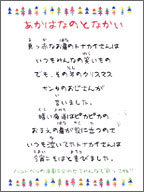 あかはなのとなかい
真っ赤なお鼻のトナカイさんは
いつもみんなの笑いもの
でも、その年のクリスマス
サンタのおじさんが
言いました。
暗い夜道はピカピカの
おまえの鼻が役に立つのさ
いつも泣いてたトナカイさんは
今宵こそはと喜びました。